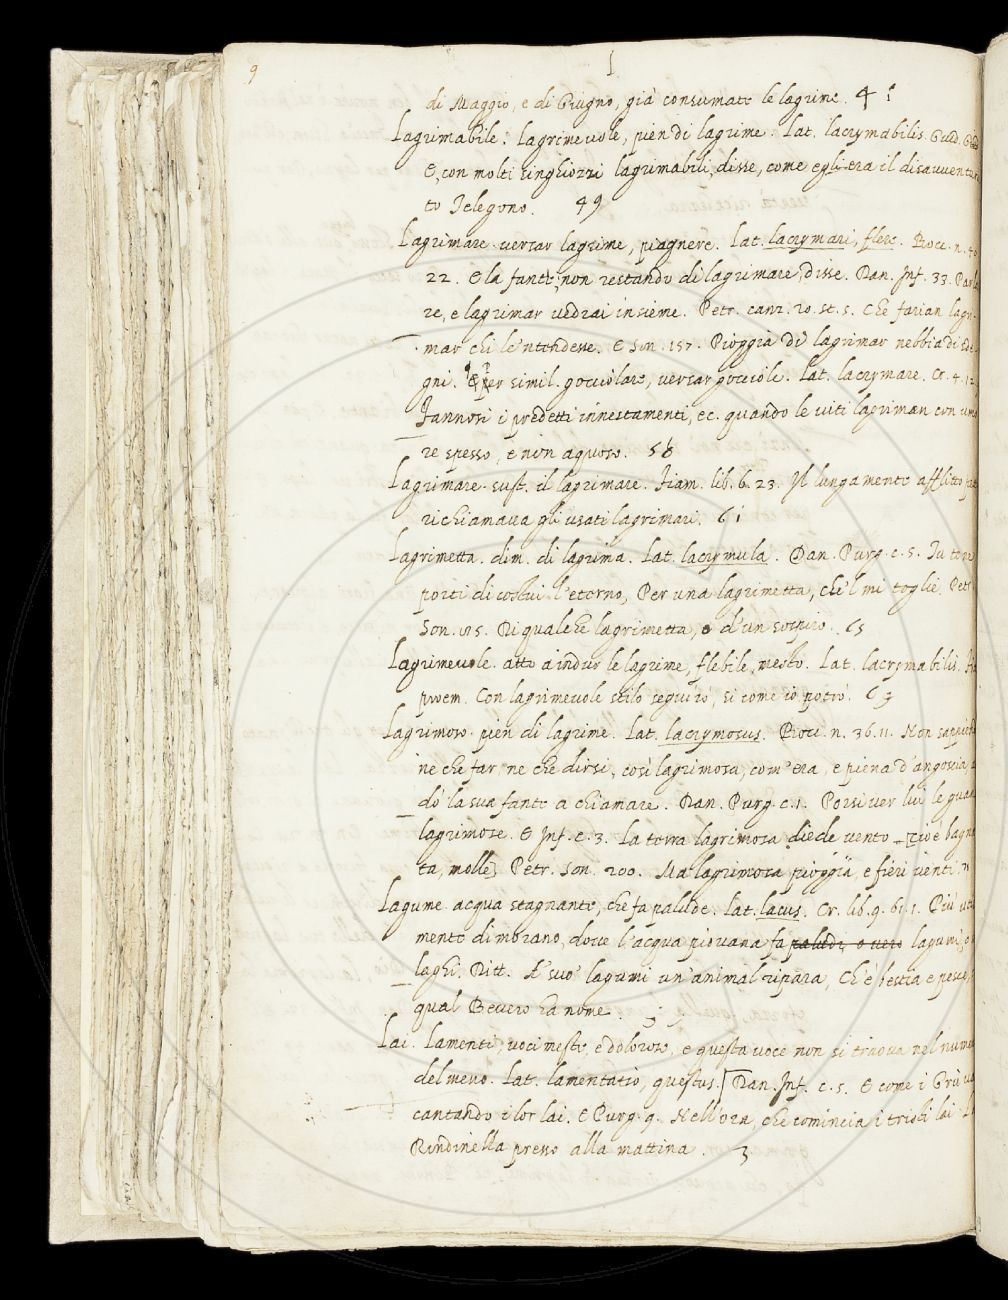 9
di Maggio, e di Giugno, già consumate le lagrime. 4
Lagrimabile. lagrimevole, pien di lagrime. Lat. lacrymabilis. Guid.
E, con molti singhiozzi lagrimabili, disse, come egli era il disavventura
to Telegono. 49
Lagrimare. versar lagrime, piagnere. Lat. lacrymari, flere. Bocc. n.
22. E la fante, non restando di lagrimare, disse. Dan. Inf. 33. Parla
re, e lagrimar vedrai insieme. Petr. canz. 20. st. 5. Che farian lagri
mar chi le 'ntendesse. E Son. 157. Pioggia di lagrimar nebbia di sde
gni. per simil. gocciolare, versar gocciole. Lat. lacrymare. Cr. 4. 12.
Fannosi i predetti innestamenti, ec. quando le viti lagriman con umo
re spesso, e non aquoso. 58
Lagrimare. sust. il lagrimare. Fiam. lib. 6. 23. Il lungamente afflitto
richiamava gli usati lagrimari. 61
Lagrimetta. dim. di lagrima. Lat. lacrymula. Dan. Purg. c. 5. Tu te ne
porti di costui l'eterno, Per una lagrimetta, che 'l mi toglie. Petr.
Son. Di qualche lagrimetta, o d'un sospiro. 65
Lagrimevole. atto a indur le lagrime, flebile, mesto. Lat. lacrymabilis.
proem. Con lagrimevole stilo seguirò, sì come io potrò. 63
Lagrimoso. pien di lagrime. Lat. lacrymosus. Bocc. n. 36. 11. Non sappiendo
ne che far, ne che dirsi, così lagrimosa, com'era, e piena d'angoscia, a
dò la sua fante a chiamare. Dan. Purg. c. 1. Porsi ver lui le guan
lagrimose. E Inf. c. 3. La terra lagrimosa diede vento [cioè bagna
ta, molle] Petr. Son. 200. Ma lagrimosa pioggia, e fieri venti. 71
Lagume. acqua stagnante, che fa palude. Lat. lacus. Cr. lib. 9. 61. 1. Più
mente dimorano, dove l'acqua piovana fa paludi, o vero lagumi, o
laghi. Ditt. A' suo' lagumi un'animal ripara, Ch'è bestia e pesce,
qual Bevero ha nome. 3
Lai. Lamenti, voci meste, e dolorose, e questa voce non si truova nel nume
del meno. Lat. lamentatio, questus. [Dan. Inf. c. 5. E come i Gru
cantando i lor lai. E Purg. 9. Nell'ora, che comincia i tristi lai La
Rondinella presso alla mattina. 3